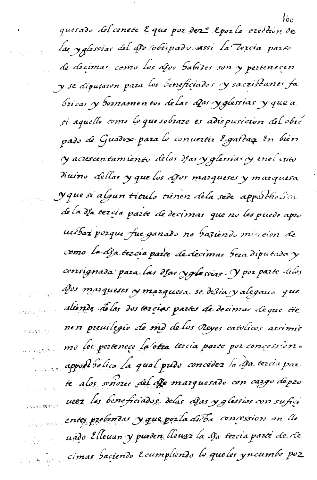 100
quesado del cenete E que por derº E por la erection de
las yglessias del dho obispado assi la tercia parte
de decimas como los dhos habices son y pertenecen
y se diputaron para los beneficiados y sacristanes fa
bricas y hornamentos de las dhas yglessias y que a
si aquello como lo que sobrare es a disposicion del obis
pado de Guadix para lo convertir E gastar En bien
y acrescentamiento de las dhas yglessias y en el culto
divino dellas y que los dhos marqueses y marquesa
y que si algun titulo tienen de la sede appostholica
de la dha tercia parte de decimas que no les puede apro
vechar porque fue ganado no haziendo mencion de
como la dha tercia parte de decimas hera diputada y
consignada para las dhas yglesias. Y por parte de los
dhos marqueses y marquesa se dezia y alegava que
aliende de las dos tercias partes de decimas de que tie
nen previlegio de md de los Reyes catolicos assimis
mo les pertenece la otra tercia parte por concession
appostholica la qual pudo conceder la dha tercia par
te a los señores del dho marquesado con cargo de pro
veer los beneficiados de las dhas yglesias con sufici
entes prebendas y que por la dicha concession an lle
vado E llevan y pueden llevar la dha tercia parte de de
cimas haziendo E cumpliendo lo que les yncumbe por